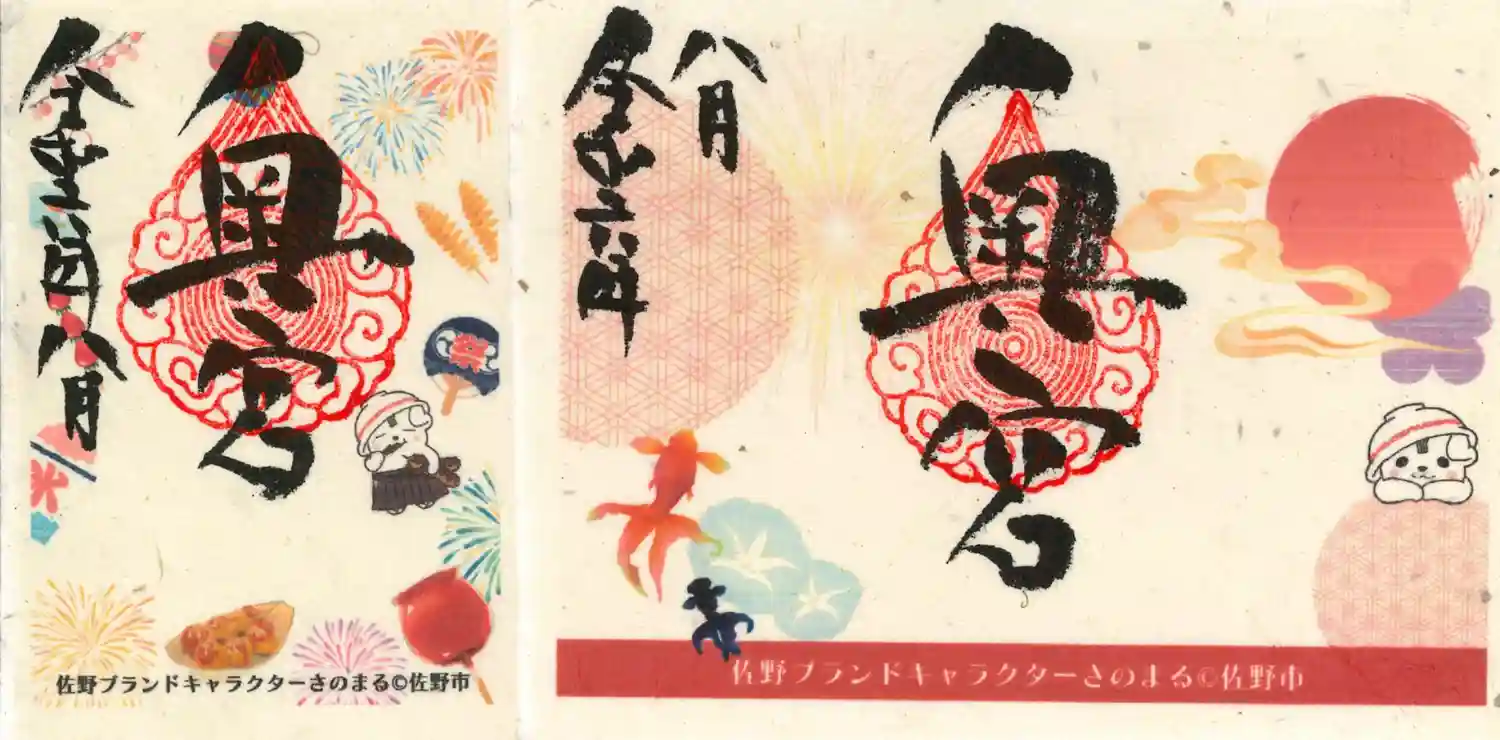 令和五年八月
奥宮
祭
佐野ブランドキャラクターさのまる©佐野市
八月
令和五年
奥宮
佐野ブランドキャラクターさのまる©佐野市